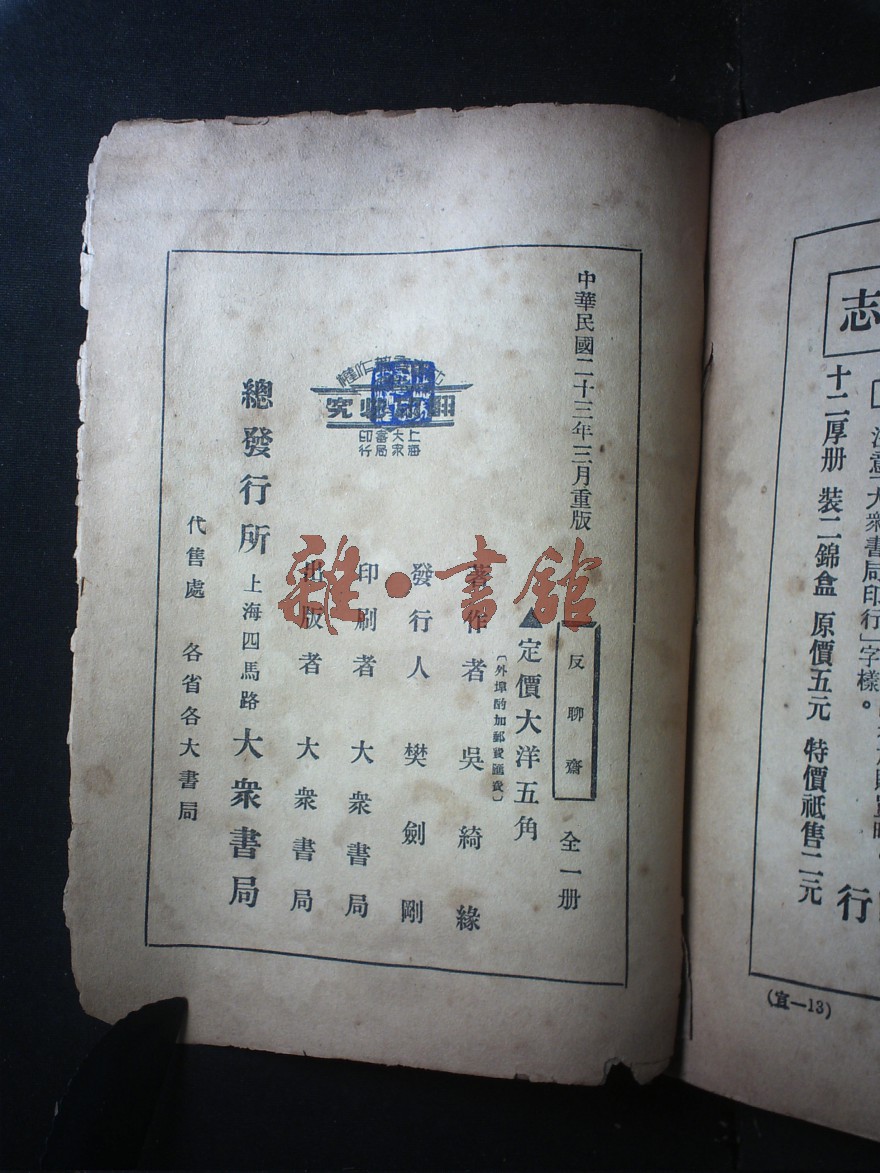 志
十二厚册 裝二錦盒 原價五元 特價祇售二元
大衆書局印行」字樣。
行
(宣—13)
中華民國二十三年三月重版
反聊齋 全一册
▲定價大洋五角
〔外埠酌加郵費匯費〕
著作者 吳綺緣
發行人 樊劍剛
印刷者 大衆書局
出版者 大衆書局
總發行所 上海四馬路 大衆書局
代售處 各省各大書局
著作權
翻印必究
上海
大衆
書局
印行
雜·書舘